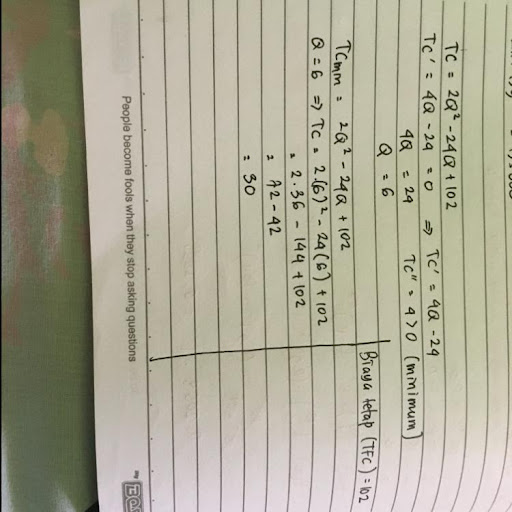 TC = 2Q² - 24Q + 102
TC' = 4Q - 24 = 0 ⇒ TC' = 4Q - 24
4Q = 24 TC" = 4 > 0 (minimum)
Q = 6
Biaya tetap (TFC) = 102
TCmin = 2Q² - 24Q + 102
Q = 6 ⇒ TC = 2(6)² - 24(6) + 102
= 2.36 - 144 + 102
= 72 - 42
= 30
People become fools when they stop asking questions